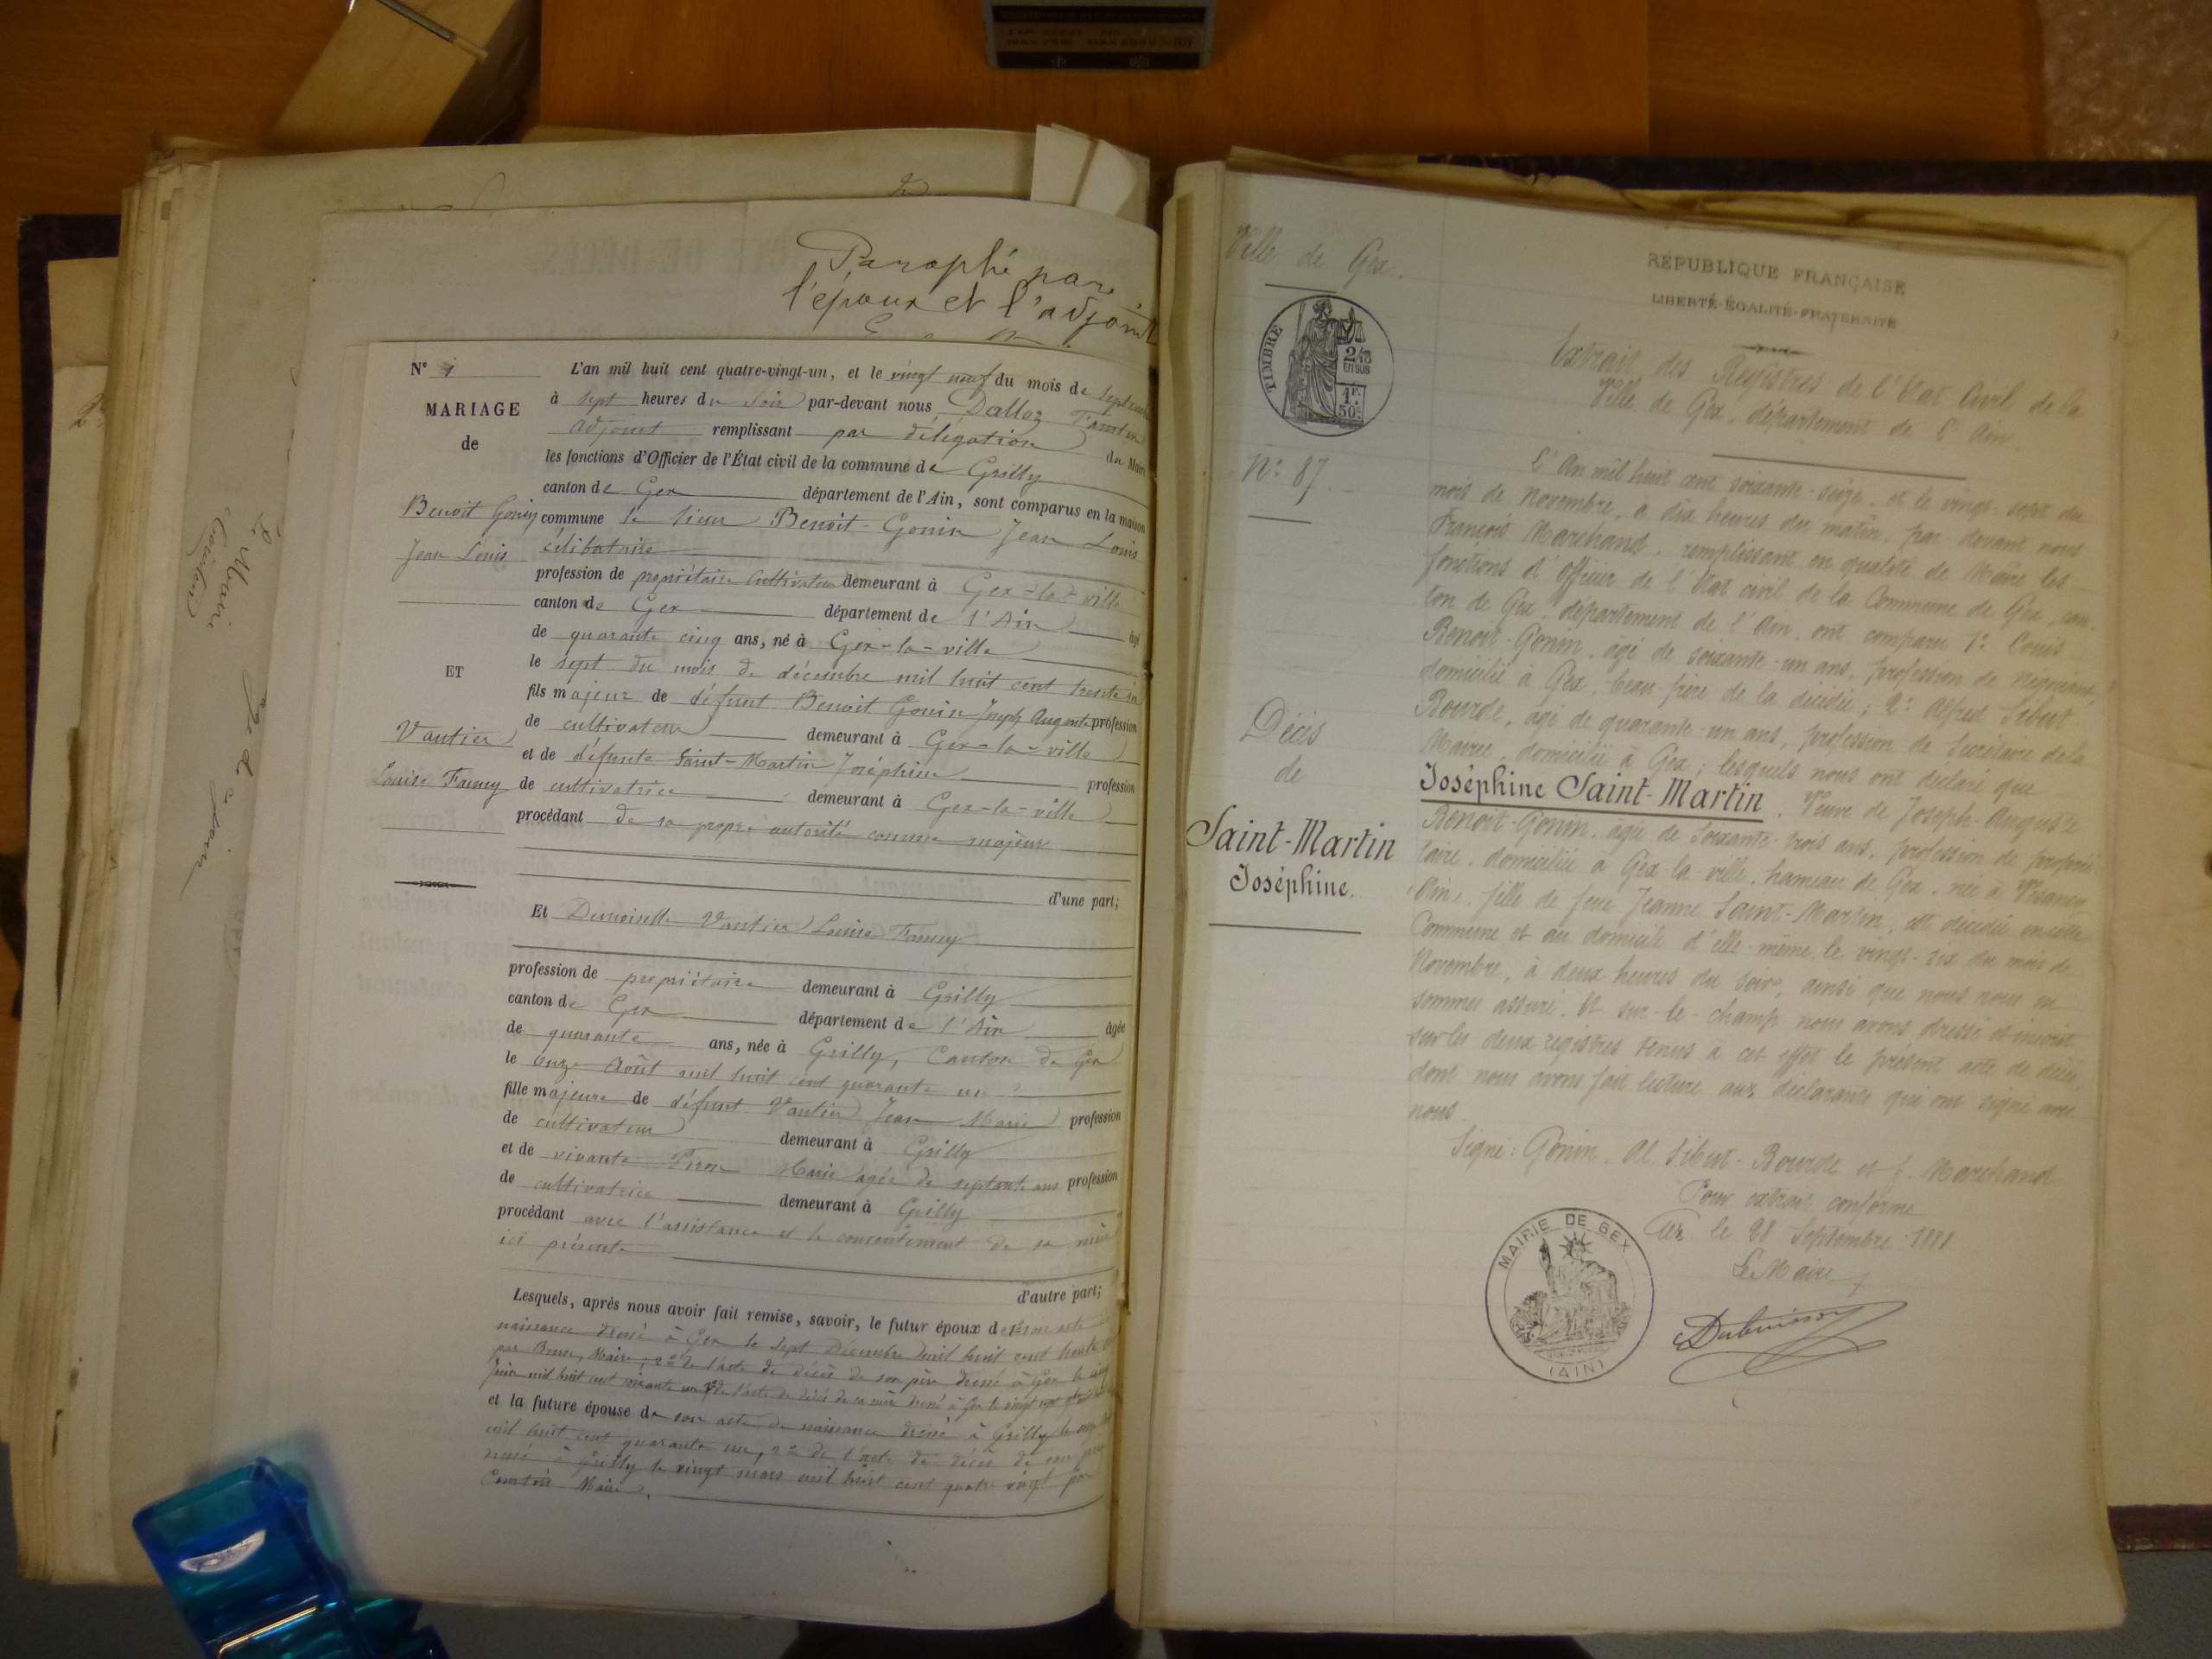 Paraphé par
l'époux et l'adjoint
N°
MARIAGE
de
Benoit Gonin
Jean Louis
ET
Vautier
Louise Fanny
L'an mil huit cent quatre-vingt-un, et le vingt neuf du mois de Septembre
à sept heures du soir par-devant nous, Dalloz
adjoint remplissant par délégation du Maire
les fonctions d'Officier de l'État civil de la commune de Grilly
canton de Gex département de l'Ain, sont comparus en la maison
commune le sieur Benoit-Gonin Jean Louis
célibataire
profession de propriétaire cultivateur demeurant à Gex-la-ville
canton de Gex département de l'Ain âgé
de quarante cinq ans, né à Gex-la-ville
le sept du mois de décembre mil huit cent trente
fils majeur de défunt Benoit Gonin Joseph Auguste profession
de cultivateur demeurant à Gex-la-ville
et de défunte Saint-Martin Joséphine profession
de cultivatrice demeurant à Gex-la-ville
procédant de sa propre autorité comme majeur
d'une part;
Et Demoiselle Vautier Louise Fanny
profession de propriétaire demeurant à Grilly
canton de Gex département de l'Ain âgée
de quarante ans, née à Grilly, Canton de Gex
le onze Août mil huit cent quarante un
fille majeure de défunt Vautier Jean Marie profession
de cultivateur demeurant à Grilly
et de vivante Marie agée de septante ans profession
de cultivatrice demeurant à Grilly
procédant avec l'assistance et le consentement de sa mère
ici présente
d'autre part;
Lesquels, après nous avoir fait remise, savoir, le futur époux de 1° son acte de
naissance dressé à Gex le sept Décembre mil huit cent trente
par Maire; 2° de l'acte de décès de son père dressé à Gex le cinq
juin mil huit cent soixante un 3° de l'acte de décès de sa mère dressé à Gex le vingt sept
et la future épouse de son acte de naissance dressé à Grilly le onze
mil huit cent quarante un, 2° de l'acte de décès de son père
dressé à Grilly le vingt mars mil huit cent quatre vingt par
Maire.
Le Maire
Ville de Gex.
TIMBRE
2/10
EN SUS
1F.
50c.
N° 87
Décès
de
Saint-Martin
Joséphine.
RÉPUBLIQUE FRANÇAISE
LIBERTÉ-ÉGALITÉ-FRATERNITÉ
Extrait des Registres de l'Etat Civil de la
Ville de Gex, département de l'Ain
L'An mil huit cent soixante-seize, et le vingt-sept du
mois de Novembre, à dix heures du matin, par devant nous
François Marchand, remplissant en qualité de Maire les
fonctions d'officier de l'Etat civil de la Commune de Gex, can-
ton de Gex, département de l'Ain, ont comparu 1° Louis
Benoit-Gonin, âgé de soixante-un ans, profession de négociant,
domicilié à Gex, beau-frère de la décédée; 2° Alfred Sibut
Bourde, âgé de quarante-un ans, profession de Secrétaire de la
Mairie, domicilié à Gex; lesquels nous ont déclaré que
Joséphine Saint-Martin, Veuve de Joseph-Auguste
Benoit-Gonin, âgée de Soixante-trois ans, profession de proprié-
taire, domiciliée à Gex-la-ville, hameau de Gex, née à Vesancy
(Ain), fille de feue Jeanne Saint-Martin, est décédée en cette
Commune et au domicile d'elle-même, le vingt-six du mois de
Novembre, à deux heures du soir, ainsi que nous nous en
sommes assuré. Et sur-le-champ nous avons dressé et inscrit
sur les deux registres tenus à cet effet le présent acte de décès,
dont nous avons fait lecture aux déclarants qui ont signé avec
nous.
Signé: Gonin, Al. Sibut-Bourde et f. Marchand
Pour extrait conforme
Gex le 28 Septembre 1881
Le Maire
MAIRIE DE GEX
(AIN)